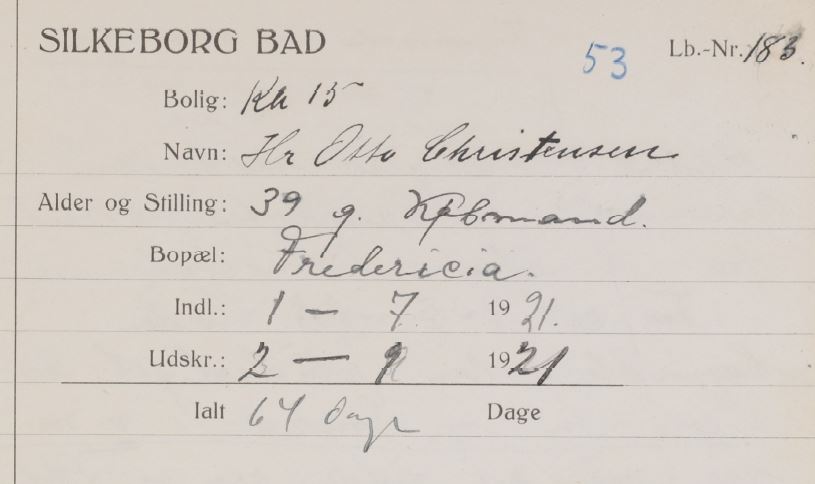 SILKEBORG BAD 53 Lb.-Nr. 183.
Bolig: Ka 15
Navn: Hr Otto Christensen
Alder og Stilling: 39 g. Købmand.
Bopæl: Fredericia.
Indl.: 1 — 7 1921.
Udskr.: 2 — 9 1921
Ialt 64 dage Dage